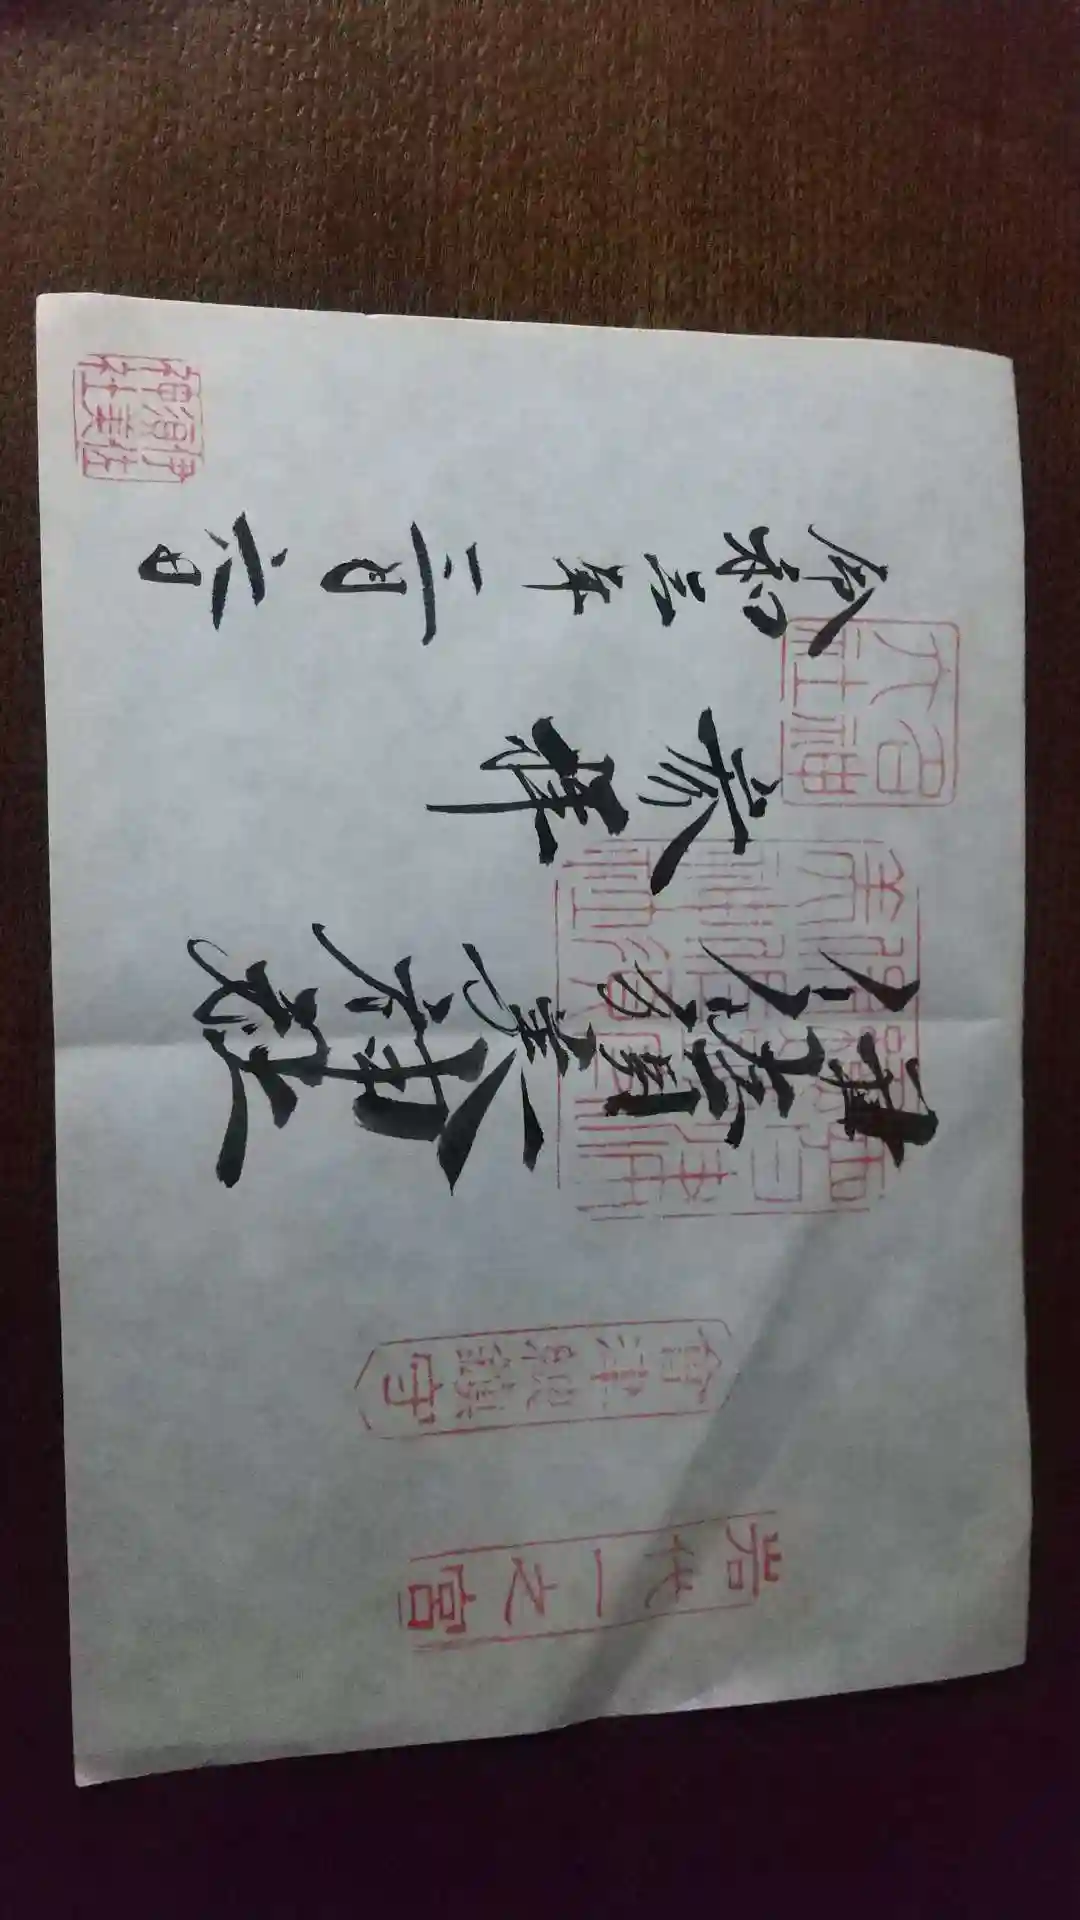 岩代一之宮
會津總鎮守
伊佐須美神社
奉拝
令和三年二月六日
伊佐
須美
神社